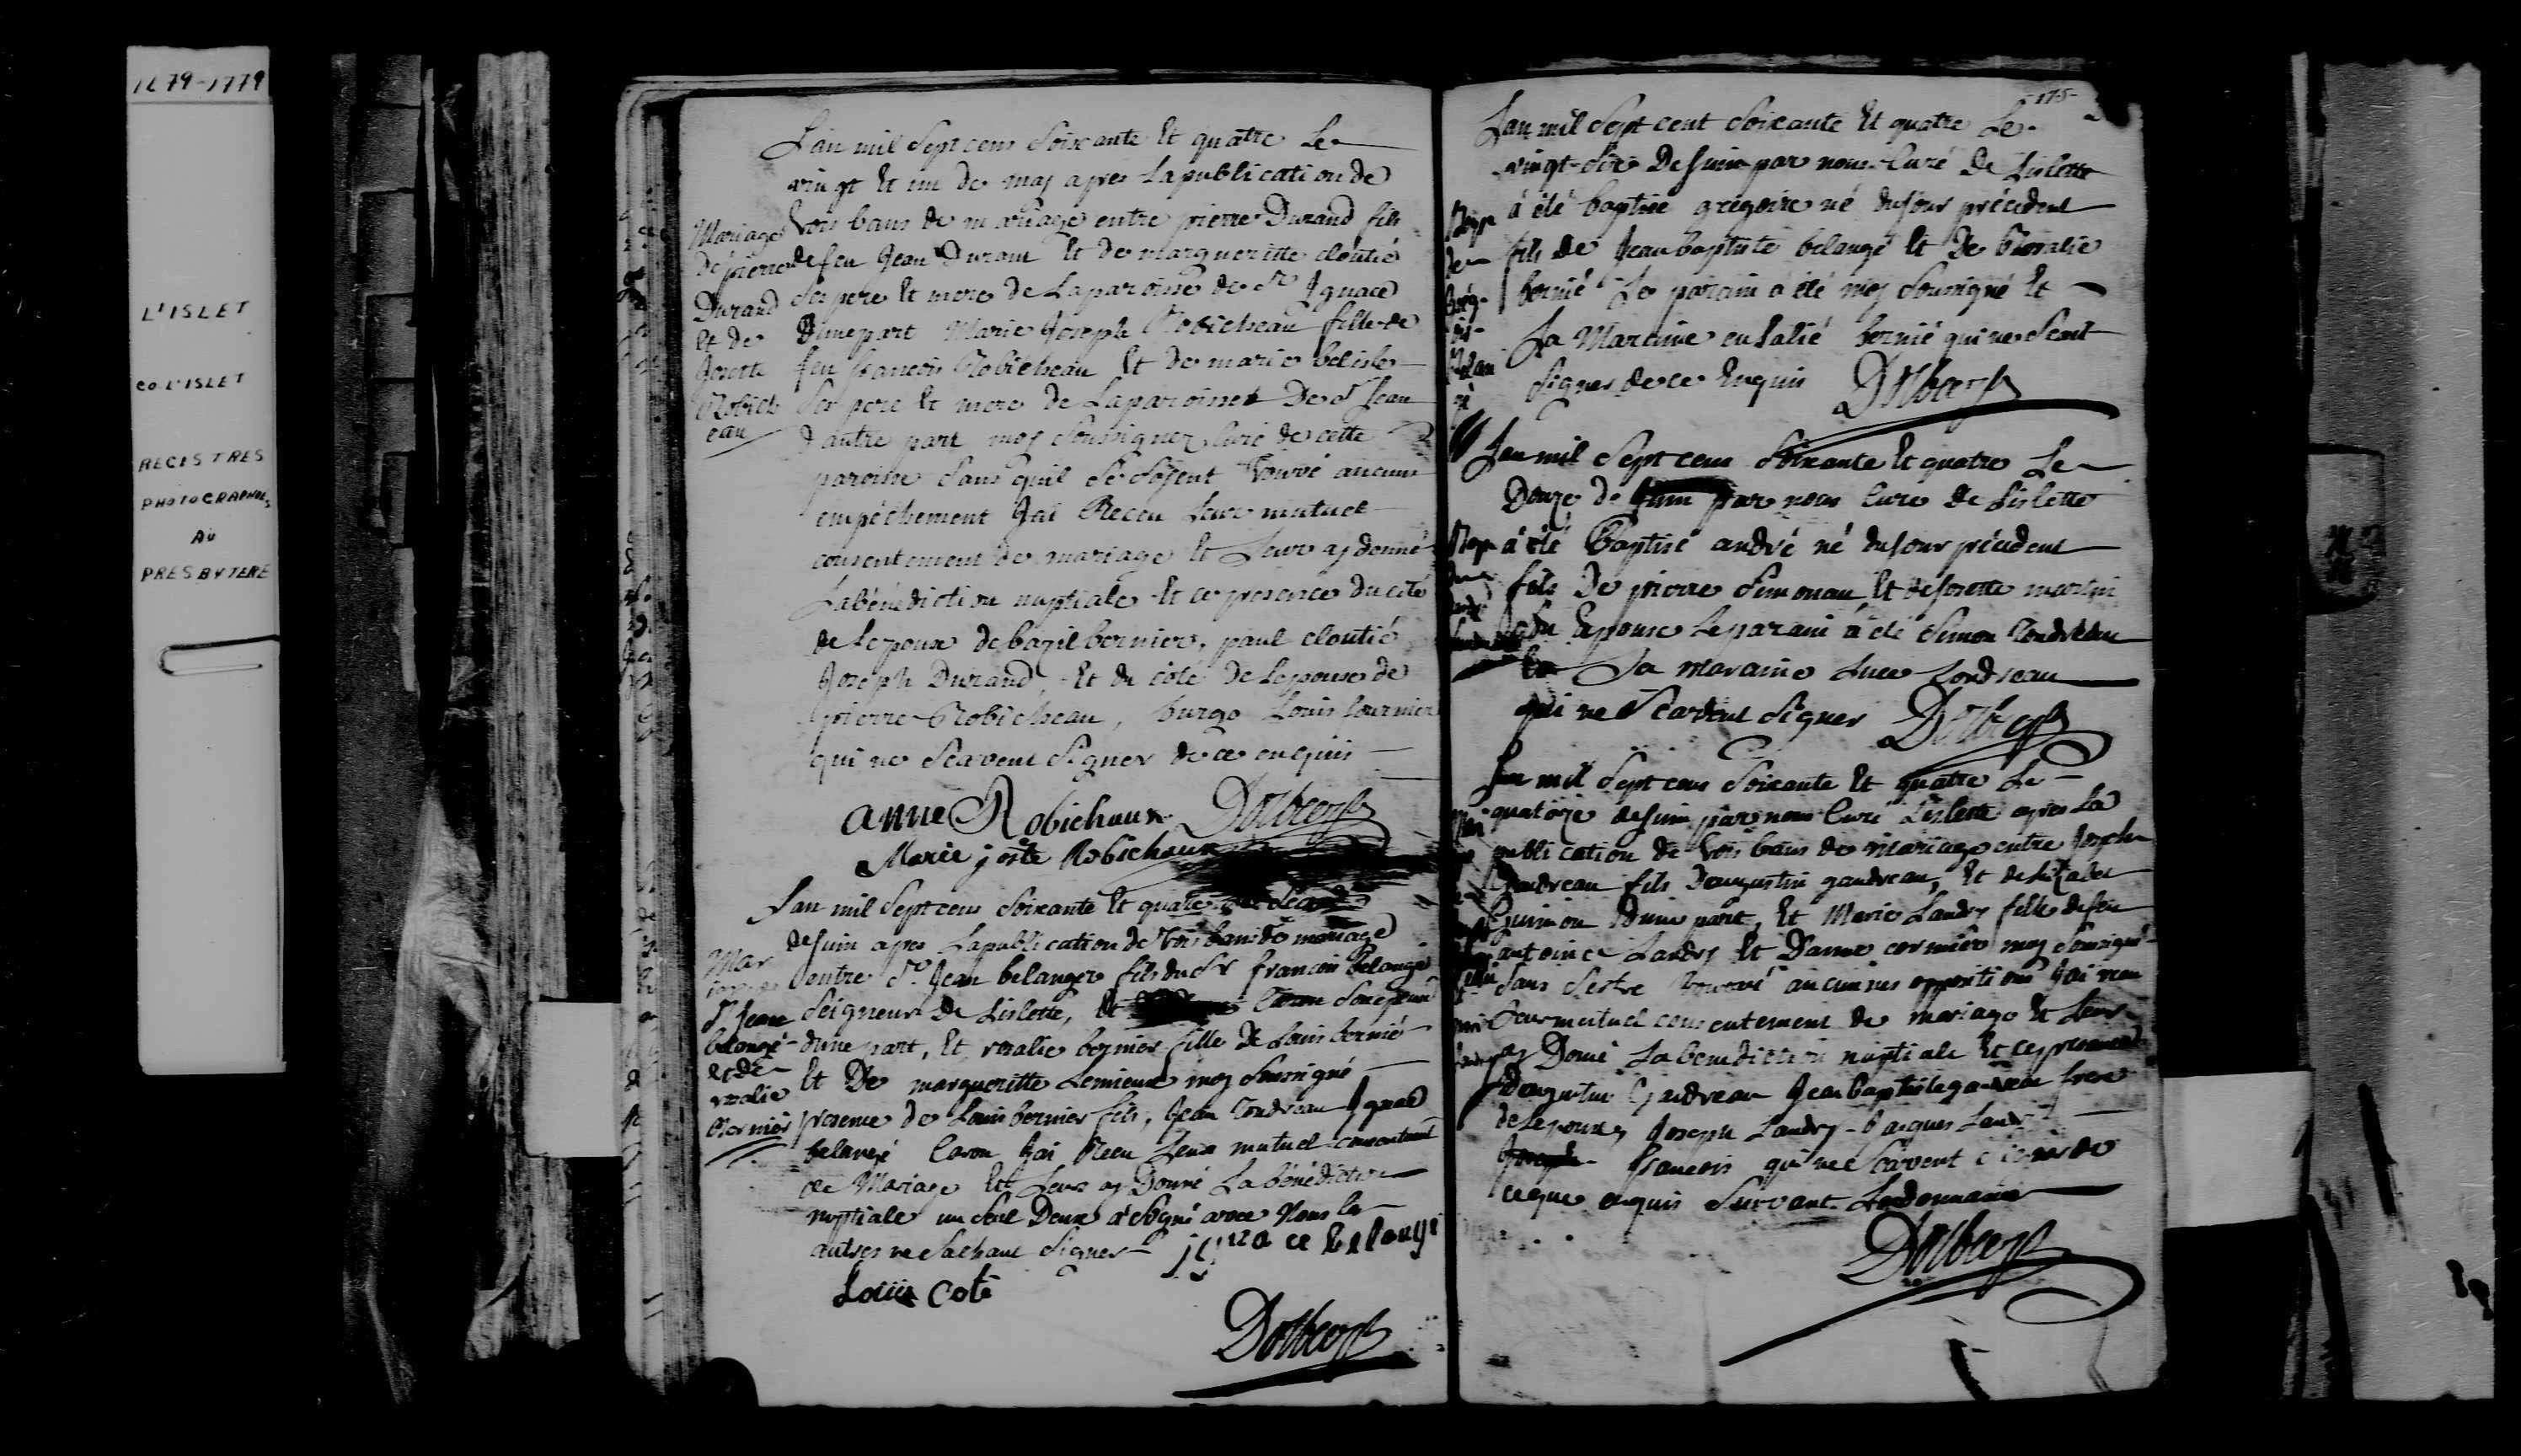 1679-1779
L'ISLET
CO L'ISLET
REGISTRES
PHOTOGRAPHIES
AU
PRESBYTERE
L'an mil Sept cens Soixante Et quatre Le
vingt Et un de may apres La publication de
trois bans de mariage entre pierre Durand fils
de feu Jean Durant Et de margueritte cloutié
Ses pere Et mere de La paroisse de St Ignace
Dune part Marie Joseph Robicheau fille de
feu francois Robicheau Et de marie belisle
Ses pere Et mere de La paroisse De St Jean
d'autre part moy Soussignez Curé de cette
paroisse Sans quil Se Soient trouvé aucun
empéchement Jai Receu Leur mutuel
consentement de mariage Et Leur ay donné
La bénédiction nuptiale Et ce presence du cité
de Lepoux de bazil bernier, paul cloutié
Joseph Durand, Et du côté de Lepouse de
pierre Robicheau, burgo Louis fournier
qui ne Scavent Signer de ce enquis
Mariage
de pierre
Durand
Et de
Josette
Robich
eau
anne Robichaux Dolbec
Marie joste Robichaux
Lan mil Sept cens Soixante Et quatre
de Juin apres La publication de trois bans de mariage
entre Sr. Jean belanger fils du Sr francois Belangé
Seigneur de Lislette, Et
dune part, Et rosalie bernier fille de Louis bernié
Et De margueritte Lemieux moy Sousigné
presence de Louis bernier fils, Jean Tondreau Ignace
belangé Caron Jai Receu Leur mutuel consentement
de Mariage Et Leur ay Donné La bénédiction
nuptiale un Seul Deux a Signé avec Nous les
autres ne Sachant Signer ignace belangé
Mar
iage de
Sr Jean
belangé
et de
rosalie
Bernier
Louis Coté
Dolbec
-175-
Lan mil Sept cent Soixante Et quatre Le
vingt-Six De Juin par nous Curé De Lislette
à été baptisé grégoire né du Jour précédent
fils de Jean baptiste belangé Et De Rosalie
bernié Le parain a été moy Sousigné Et
La Maraine bernié qui ne Scait
Signer de ce Enquis Dolbec
Lan mil Sept cens Soixante Et quatre Le
Douze de Juin par nous Curé de Lislette
à été Baptisé andré né du Jour précédent
fils De pierre Simonau Et de Josette martin
Son Epouse Le parain à été Simon Tondreau
La maraine Luce Tondreau
qui ne Scavent Signer Dolbec
Lan mil Sept cens Soixante Et quatre Le
quatorze de Juin par nous Curé Lislette apres La
publication de trois bans de mariage entre Joseph
Gaudreau fils D'augustin gaudreau, Et de
Guimon Dune part, Et Marie Landry fille de feu
antoine Landry Et D'anne cormier moy Sousigné
Sans Sestre trouvé aucunnes oppositions Jai receu
Leur mutuel consentement de mariage Et Leur
ay Donné La benediction nuptiale Et ce presence
D'augustin Gaudreau Jean baptiste gaudreau frere
de Lepoux, Joseph Landry Jacques Landry
francois qui ne Scavent Signer de
ceque enquis Suivant Lordonnance
Dolbec